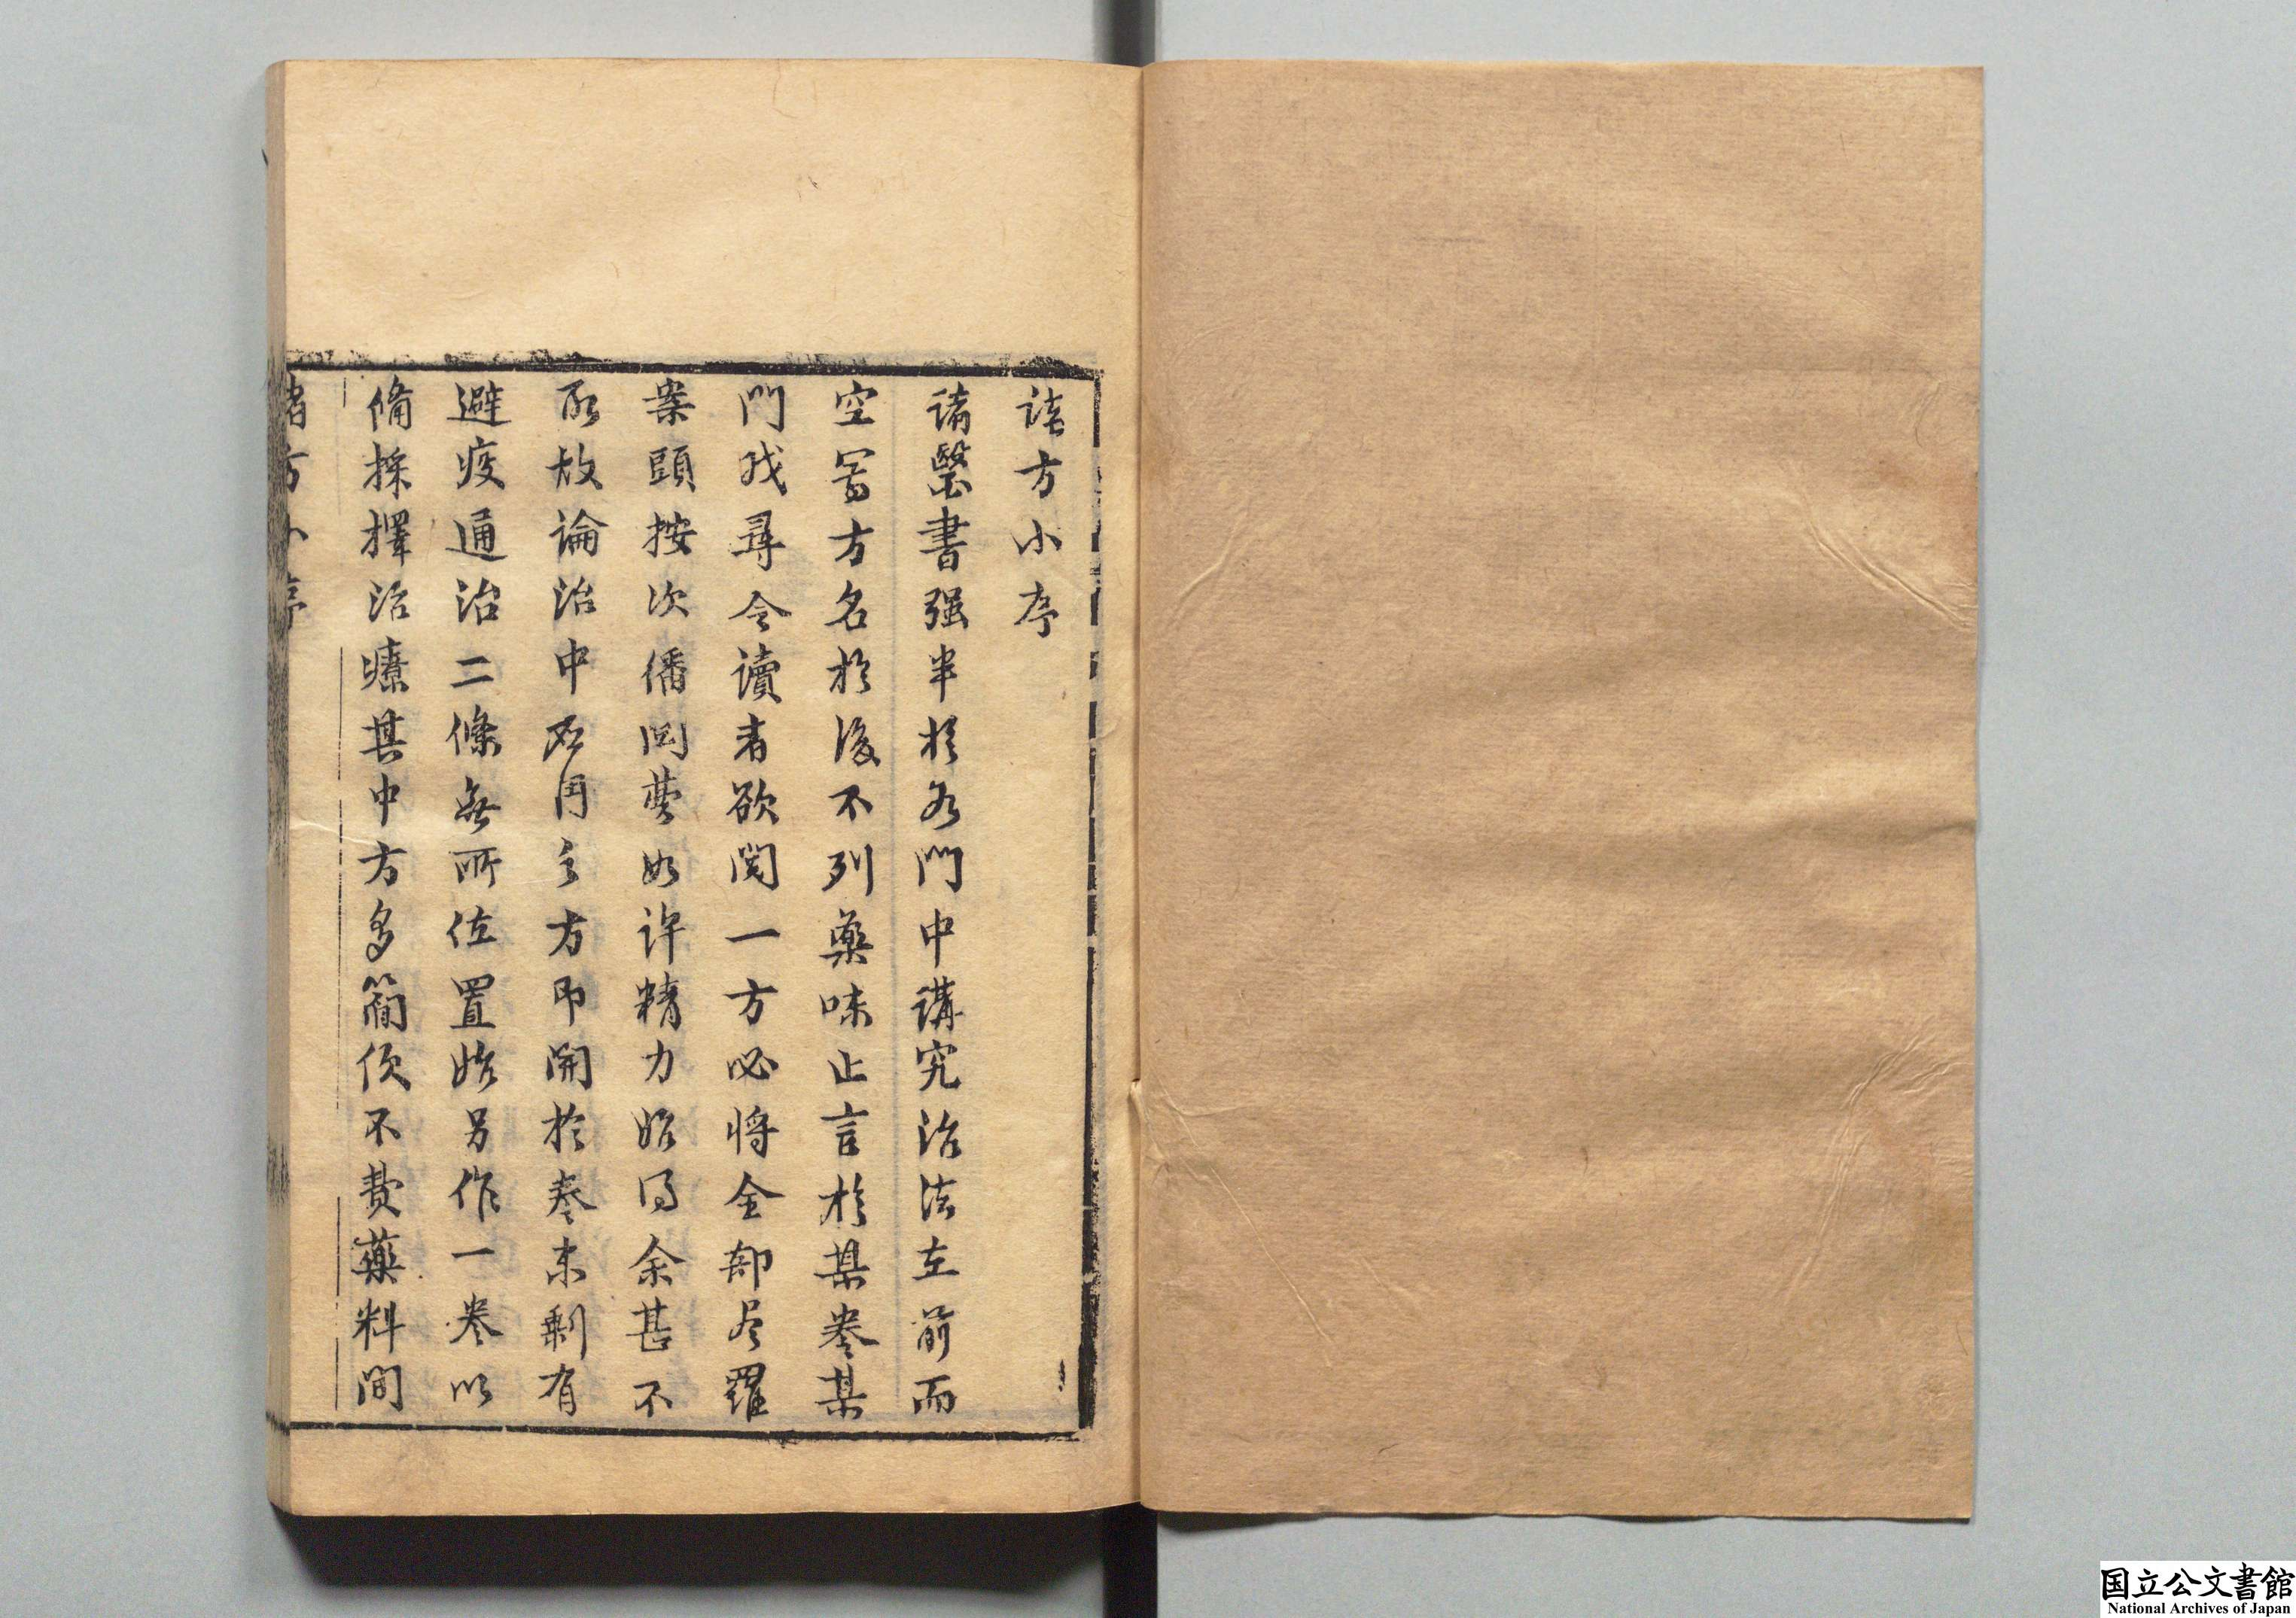 諸方小序
諸醫書强半於各門中講究治法在前而
空寫方名於後不列藥味止言於某卷某
門找尋令讀者欲閱一方必將全部尽羅
案頭按次偹閱費如許精力始得余甚不
取故論治中所用之方即開於卷末剩有
避疫通治二條無所位置始另作一卷以
備採擇治療其中方多簡便不費藥料間
諸方小序
国立公文書館
National Archives of Japan